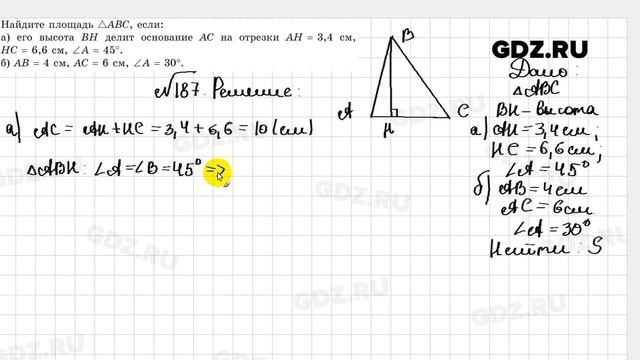 Найдите площадь △ABC, если:
а) его высота BH делит основание AC на отрезки AH = 3,4 см,
HC = 6,6 см, ∠A = 45°.
б) AB = 4 см, AC = 6 см, ∠A = 30°.
GDZ.RU
№187. Решение:
Дано:
△ABC
BH – высота
а) AH = 3,4 см;
HC = 6,6 см;
∠A = 45°
б) AB = 4 см
AC = 6 см
∠A = 30°
Найти: S
B
A
H
C
а) AC = AH + HC = 3,4 + 6,6 = 10 (см)
△ABH: ∠A = ∠B = 45° =>
GDZ.RU
GDZ.RU
GDZ.RU
GDZ.RU